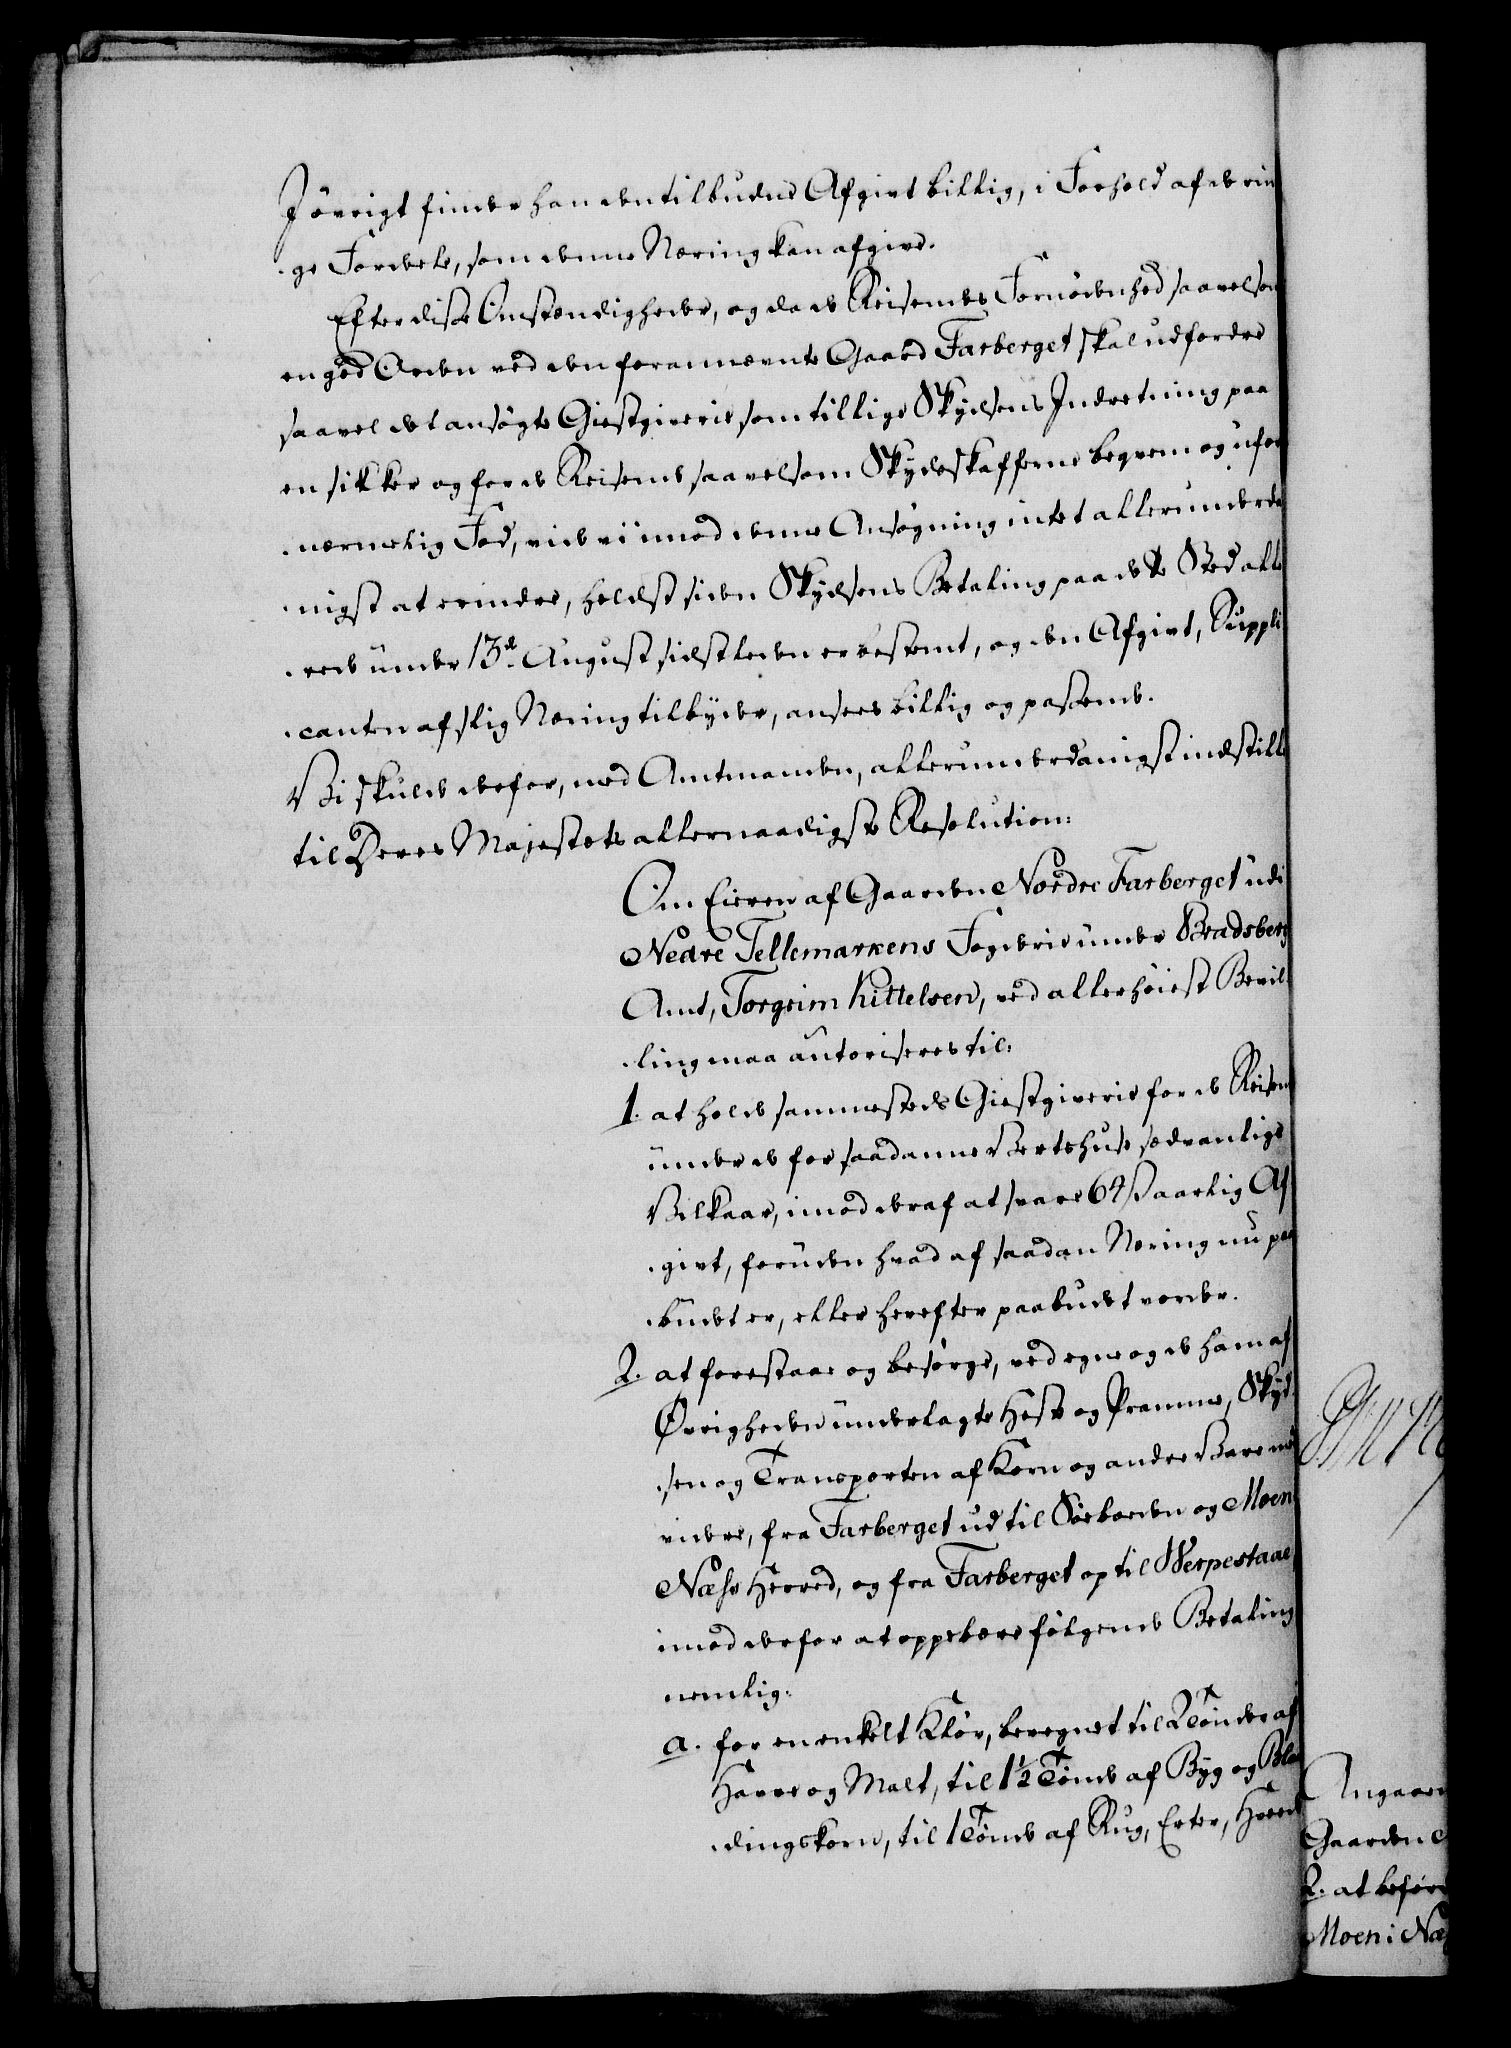 I øvrigt finder han den tilbudne Afgivt billig, i Forhold af de rin
ge Fordele, som denne Næring kan afgive.
Efter disse Omstændigheder, og da de Reisendes Fornødenhed saavelsom
en god Orden ved den forannævnte Gaard Farberget skal udfordre
saavel det ansøgte Giestgiverie som tillige Skydsens Indretning paa
en sikker og for de Reisende saavelsom Skydsskafferne beqvem og ufor
nærmelig Fod, vide vi imod denne Ansøgning intet allerunderda
nigst at erindre, heldst siden Skydsens Betaling paa dette Sted alle
rede under 13de August sidstleden er bestemt, og den Afgivt, Suppli
canten af slig Næring tilbyder, ansees billig og passende.
Vi skulde derfor, med Amtmanden, allerunderdanigst indstille
til Deres Majestæts allernaadigste Resolution:
Om Eieren af Gaarden Nordre Farberget udi
Nedre Tellemarkens Fogderie under Bradsberg
Amt, Torgrim Kittelsen, ved allerhøiest Bevil
ling maa autoriseres til:
1. at holde sammesteds Giestgiverie for de Reisen
under de for saadanne Vertshuse sædvanlige
Vilkaar, imod deraf at svare 64 s aarlig Af
givt, foruden hvad af saadan Næring nu paa
budet er, eller herefter paabudet vorder.
2. at forestaae og besørge, ved egne og de ham af
Øvrigheden underlagte Heste og Pramme, Skyd
sen og Transporten af Korn og andre Vare med
videre, fra Farberget ud til Søeborden og Moen
Næss Herred, og fra Farberget op til Werpestaae
imod derfor at oppebære følgende Betaling
nemlig:
a. for en enkelt Kløv, beregnet til 2 Tønder af
Havre og Malt, til 1½ Tønde af Byg og Blan
dingskorn, til 1 Tønde af Rug, Erter, Hvede
Angaaen
Gaarden
2. at befør
Moen i Næ